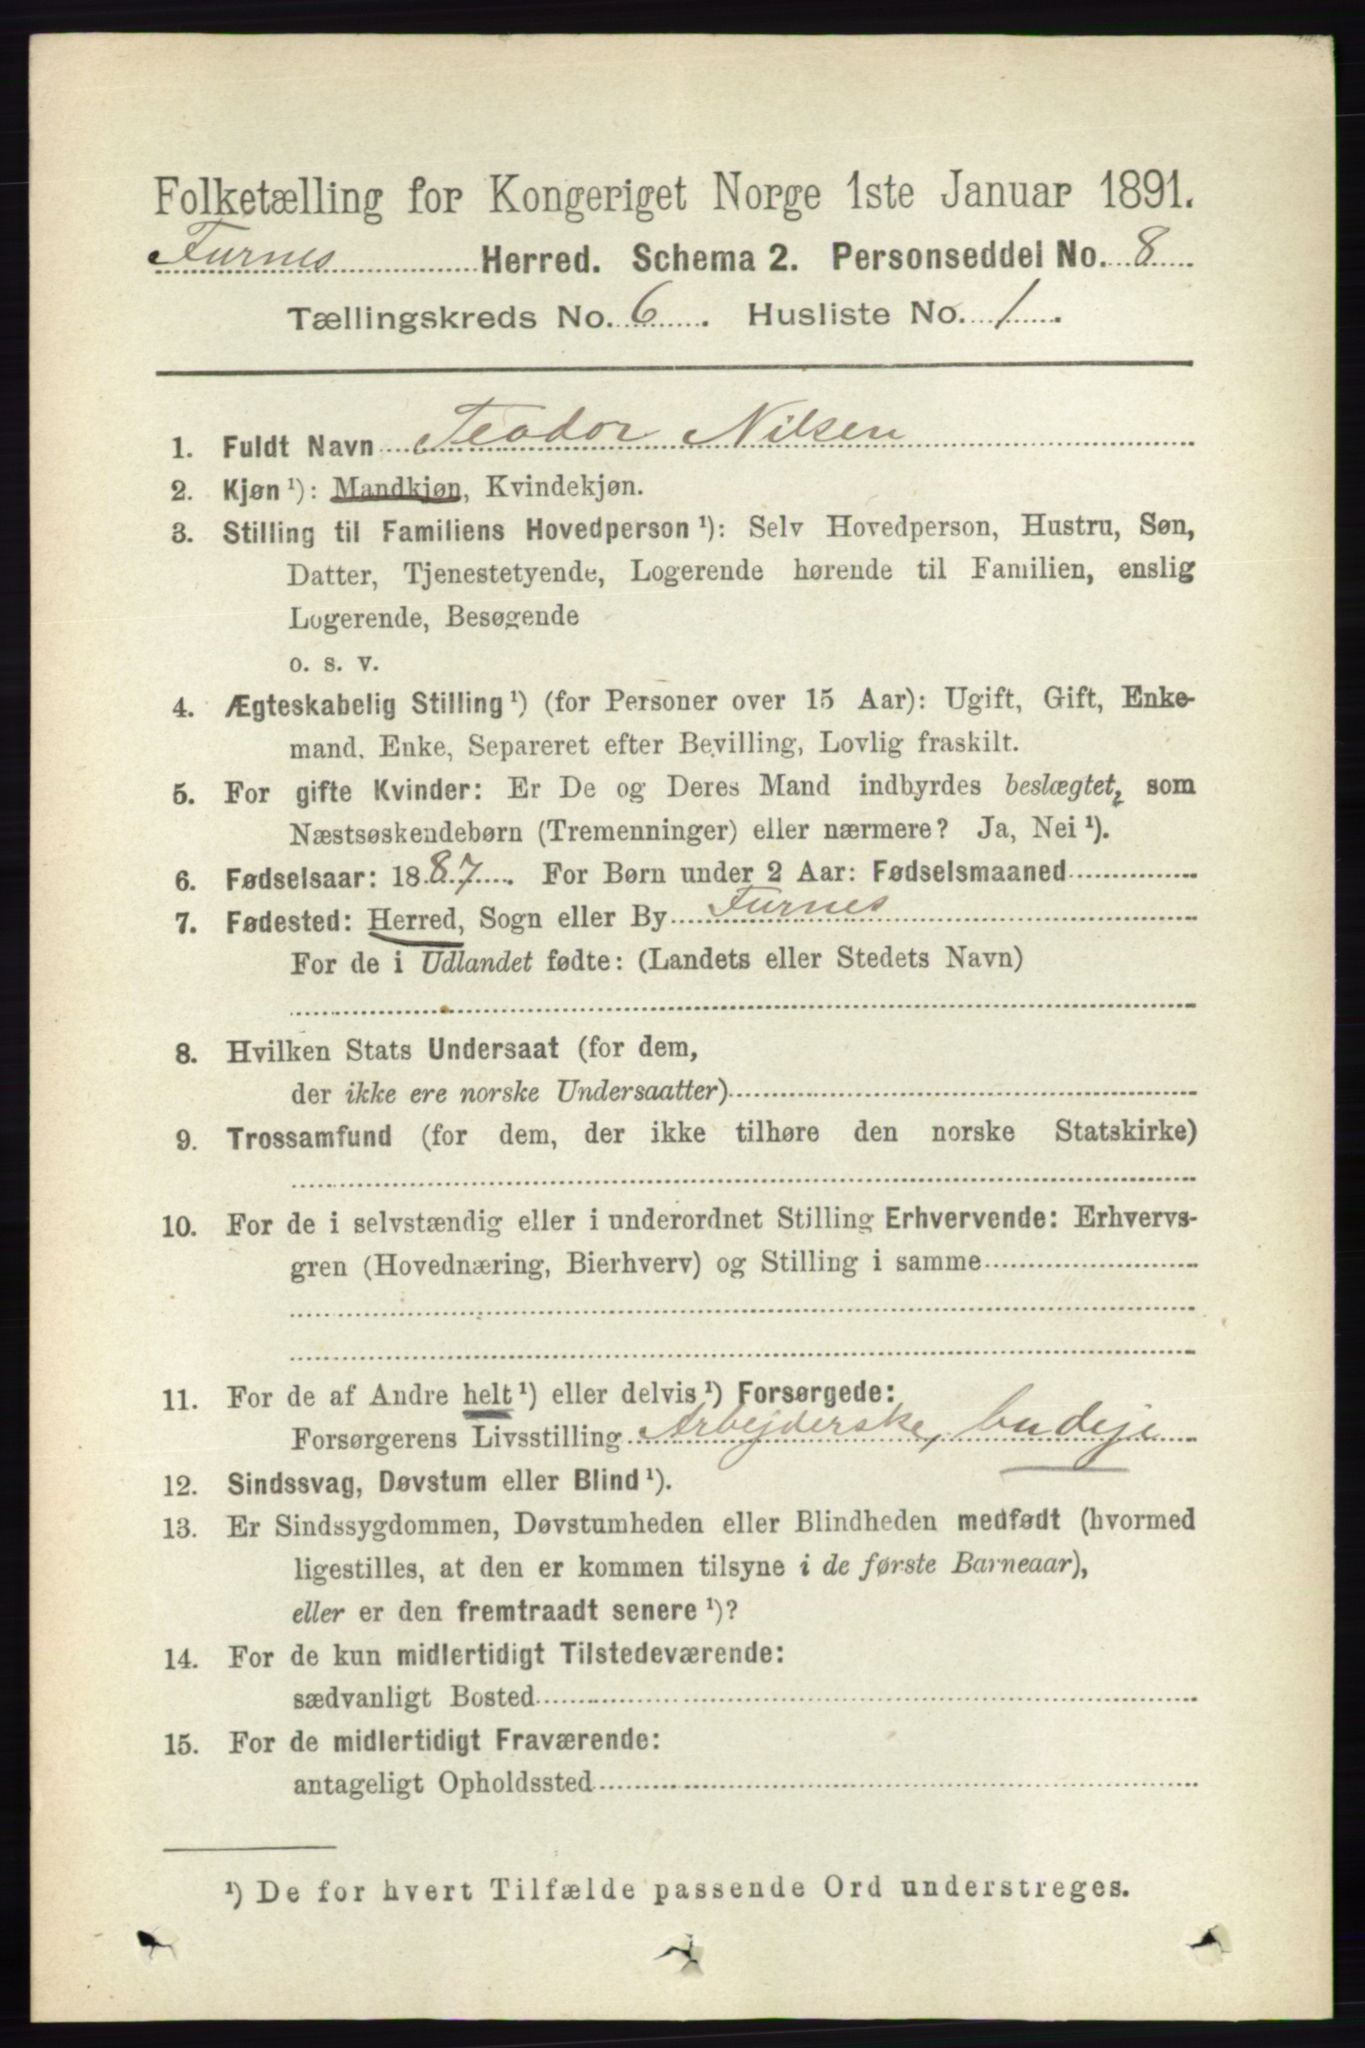 Folketælling for Kongeriget Norge 1ste Januar 1891.
Furnes Herred. Schema 2. Personseddel No. 8
Tællingskreds No. 6. Husliste No. 1.
1. Fuldt Navn Teodor Nilsen
2. Kjøn¹): Mandkjøn, Kvindekjøn.
3. Stilling til Familiens Hovedperson¹): Selv Hovedperson, Hustru, Søn,
Datter, Tjenestetyende, Logerende hørende til Familien, enslig
Logerende, Besøgende
o. s. v.
4. Ægteskabelig Stilling¹) (for Personer over 15 Aar): Ugift, Gift, Enke-
mand, Enke, Separeret efter Bevilling, Lovlig fraskilt.
5. For gifte Kvinder: Er De og Deres Mand indbyrdes beslægtet, som
Næstsøskendebørn (Tremenninger) eller nærmere? Ja, Nei¹).
6. Fødselsaar: 1887. For Børn under 2 Aar: Fødselsmaaned
7. Fødested: Herred, Sogn eller By Furnes
For de i Udlandet fødte: (Landets eller Stedets Navn)
8. Hvilken Stats Undersaat (for dem,
der ikke ere norske Undersaatter)
9. Trossamfund (for dem, der ikke tilhøre den norske Statskirke)
10. For de i selvstændig eller i underordnet Stilling Erhvervende: Erhvervs-
gren (Hovednæring, Bierhverv) og Stilling i samme
11. For de af Andre helt¹) eller delvis¹) Forsørgede:
Forsørgerens Livsstilling Arbejderske, budeje
12. Sindssvag, Døvstum eller Blind¹).
13. Er Sindssygdommen, Døvstumheden eller Blindheden medfødt (hvormed
ligestilles, at den er kommen tilsyne i de første Barneaar),
eller er den fremtraadt senere¹)?
14. For de kun midlertidigt Tilstedeværende:
sædvanligt Bosted
15. For de midlertidigt Fraværende:
antageligt Opholdssted
¹) De for hvert Tilfælde passende Ord understreges.